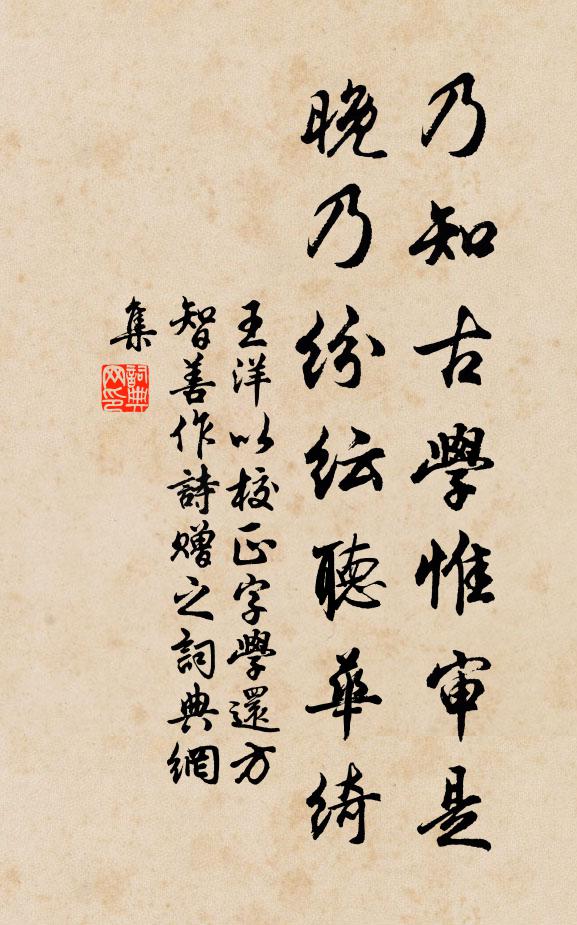 乃知古學惟审是
晚乃纷纭聽華绮
王洋以校正字學還方
智善作詩赠之詞典網
集
詞典
网印